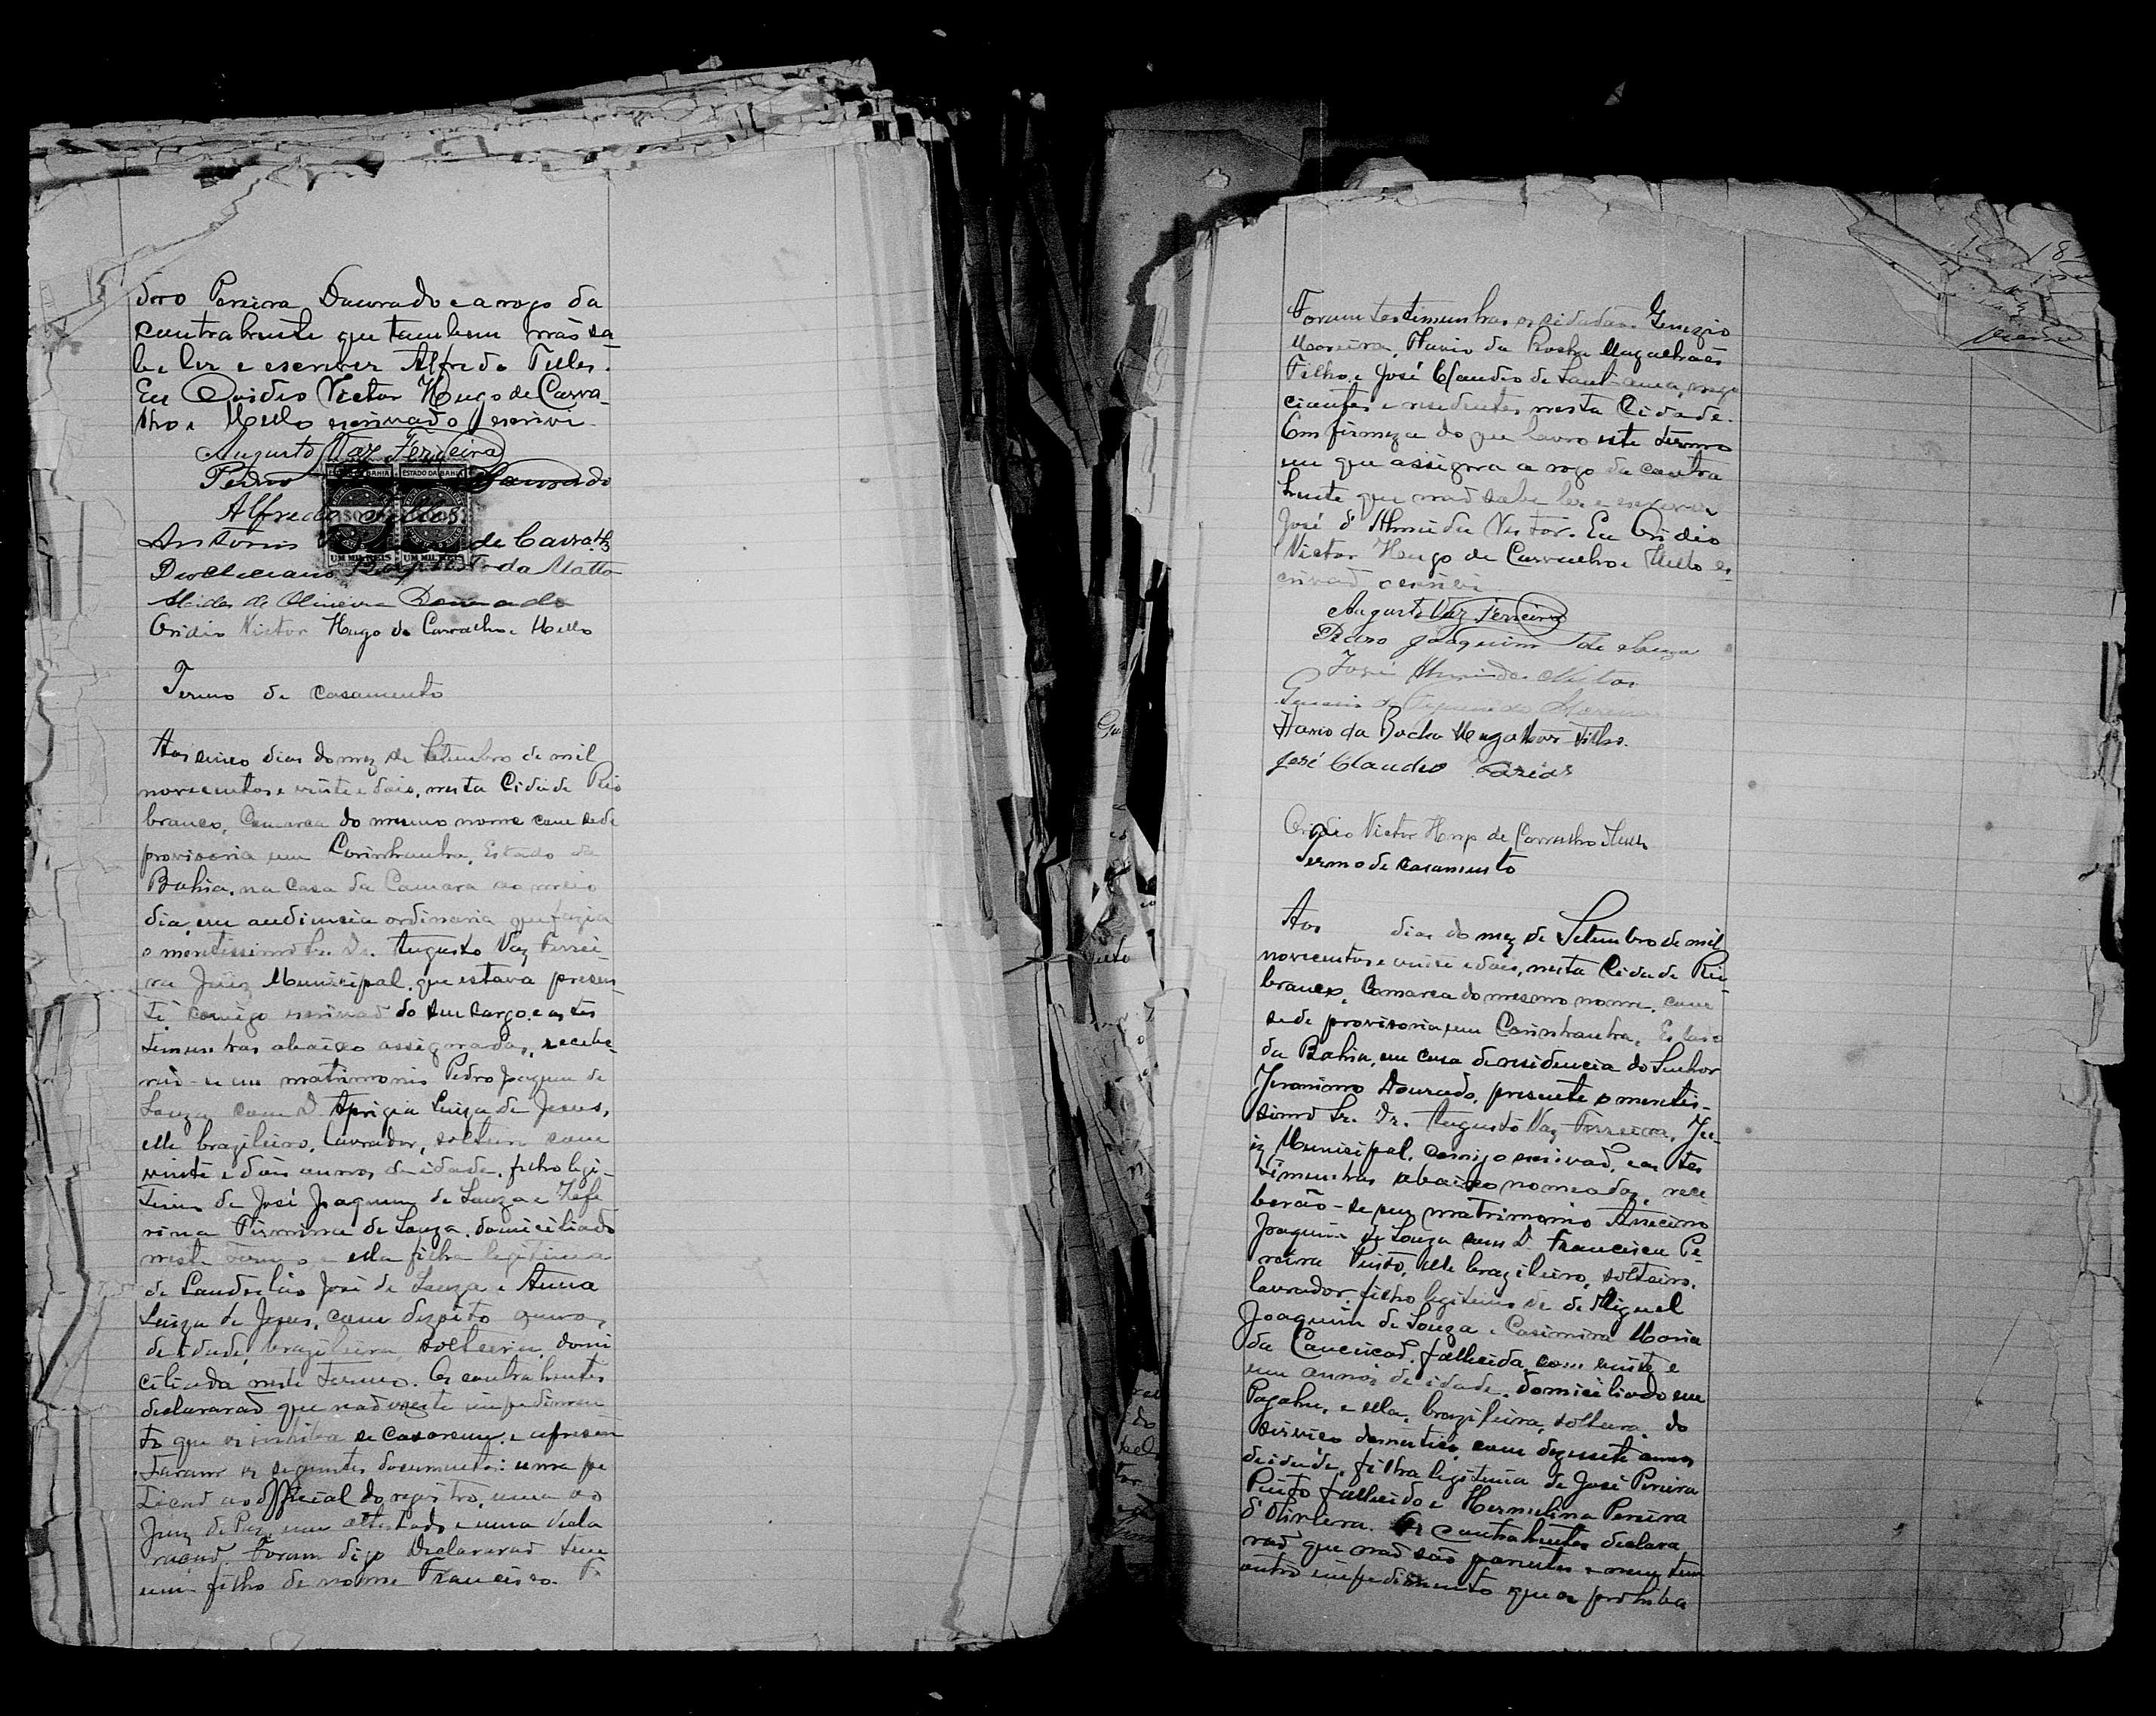 dro Pereira Dourado e a rogo da
contrahente que tambem não sa-
be ler e escrever Alfredo Telles.
Eu Ovidio Victor Hugo de Carva-
lho e Mello escrivão escrivi.
Augusto Vaz Ferreira
Pedro Dourado
Alfredo Telles
ESTADO DA BAHIA
UM MIL REIS UM MIL REIS
Antonio de Carvalho
Diocleciano Baptista da Matta
Alcides de Oliveira Dourado
Ovidio Victor Hugo de Carvalho e Mello
Termo de casamento
Aos cinco dias do mez de Setembro de mil
novecentos e vinte e dois, nesta Cidade Rio
branco, Comarca do mesmo nome com sede
provisoria em Carinhanha, Estado da
Bahia, na casa da Camara ao meio
dia, em audiencia ordinaria que fazia
o meretissimo Sr. Dr. Augusto Vaz Ferrei-
ra Juiz Municipal, que estava presen-
te comigo escrivão do seu cargo e as tes
timunhas abaixo assignadas, recebe-
rão-se em matrimonio Pedro Joaquim de
Souza com D. Aprigia Luiza de Jesus,
elle brazileiro, lavrador, solteiro com
vinte e dois annos de idade, filho legi-
timo de José Joaquim de Souza e Zefe
rina Firmina de Souza, domiciliado
neste Termo e ella filha legitima
de Landoelino José de Souza e Anna
Luiza de Jesus, com dezoito annos,
de idade, brazileira, solteira, domi
ciliada neste Termo. Os contrahentes
declararão que não existe impedimen
to que os inhiba se casarem; e apresen
taram os seguintes documentos: uma pe
tição ao official do registro, uma ao
Juiz de Paz, um attestado e uma decla
ração. Foram digo Declararão terem
um filho de nome Francisco.
Foram testimunhas os cidadãos Genezio
Moreira, Flavio da Rocha Magalhães
Filho e José Claudio de Sant'anna, nego
ciantes e residentes nesta Cidade.
Em firmeza do que lavro este termo
em que assigna a rogo da contra
hente que não sabe ler e escrever
José d'Almeida Victor. Eu Ovidio
Victor Hugo de Carvalho e Mello es-
crivão escrivi
Augusto Vaz Ferreira
Pedro Joaquim de Souza
José Almeida Victor
Flavio da Rocha Magalhães Filho.
José Claudio
Ovidio Victor Hugo de Carvalho e Mello
Termo de casamento
Aos dias do mez de Setembro de mil
novecentos e vinte e dois, nesta Cidade Rio-
branco, Comarca do mesmo nome, com
sede provisoria em Carinhanha, Estado
da Bahia, em casa de residencia do Senhor
Jeronimo Dourado, presente o meretis-
simo Sr. Dr. Augusto Vaz Ferreira, Ju-
iz Municipal, comigo escrivão, e as tes
timunhas abaixo nomeadas, rece
berão-se em matrimonio
Joaquim de Souza com D. Francisca Pe-
reira Pinto, elle brazileiro, solteiro,
lavrador, filho legitimo de de Miguel
Joaquim de Souza e Casimira Maria
da Conceição, fallecida, com vinte e
um annos de idade, domiciliado em
e ella, brazileira, solteira, do
serviço domestico, com dezesete annos
de idade, filha legitima de José Pereira
Pinto fallecido e Hermelina Pereira
d'Oliveira. Os contrahentes declara
rão que não são parentes e nem tem
outro impedimento que os prohiba